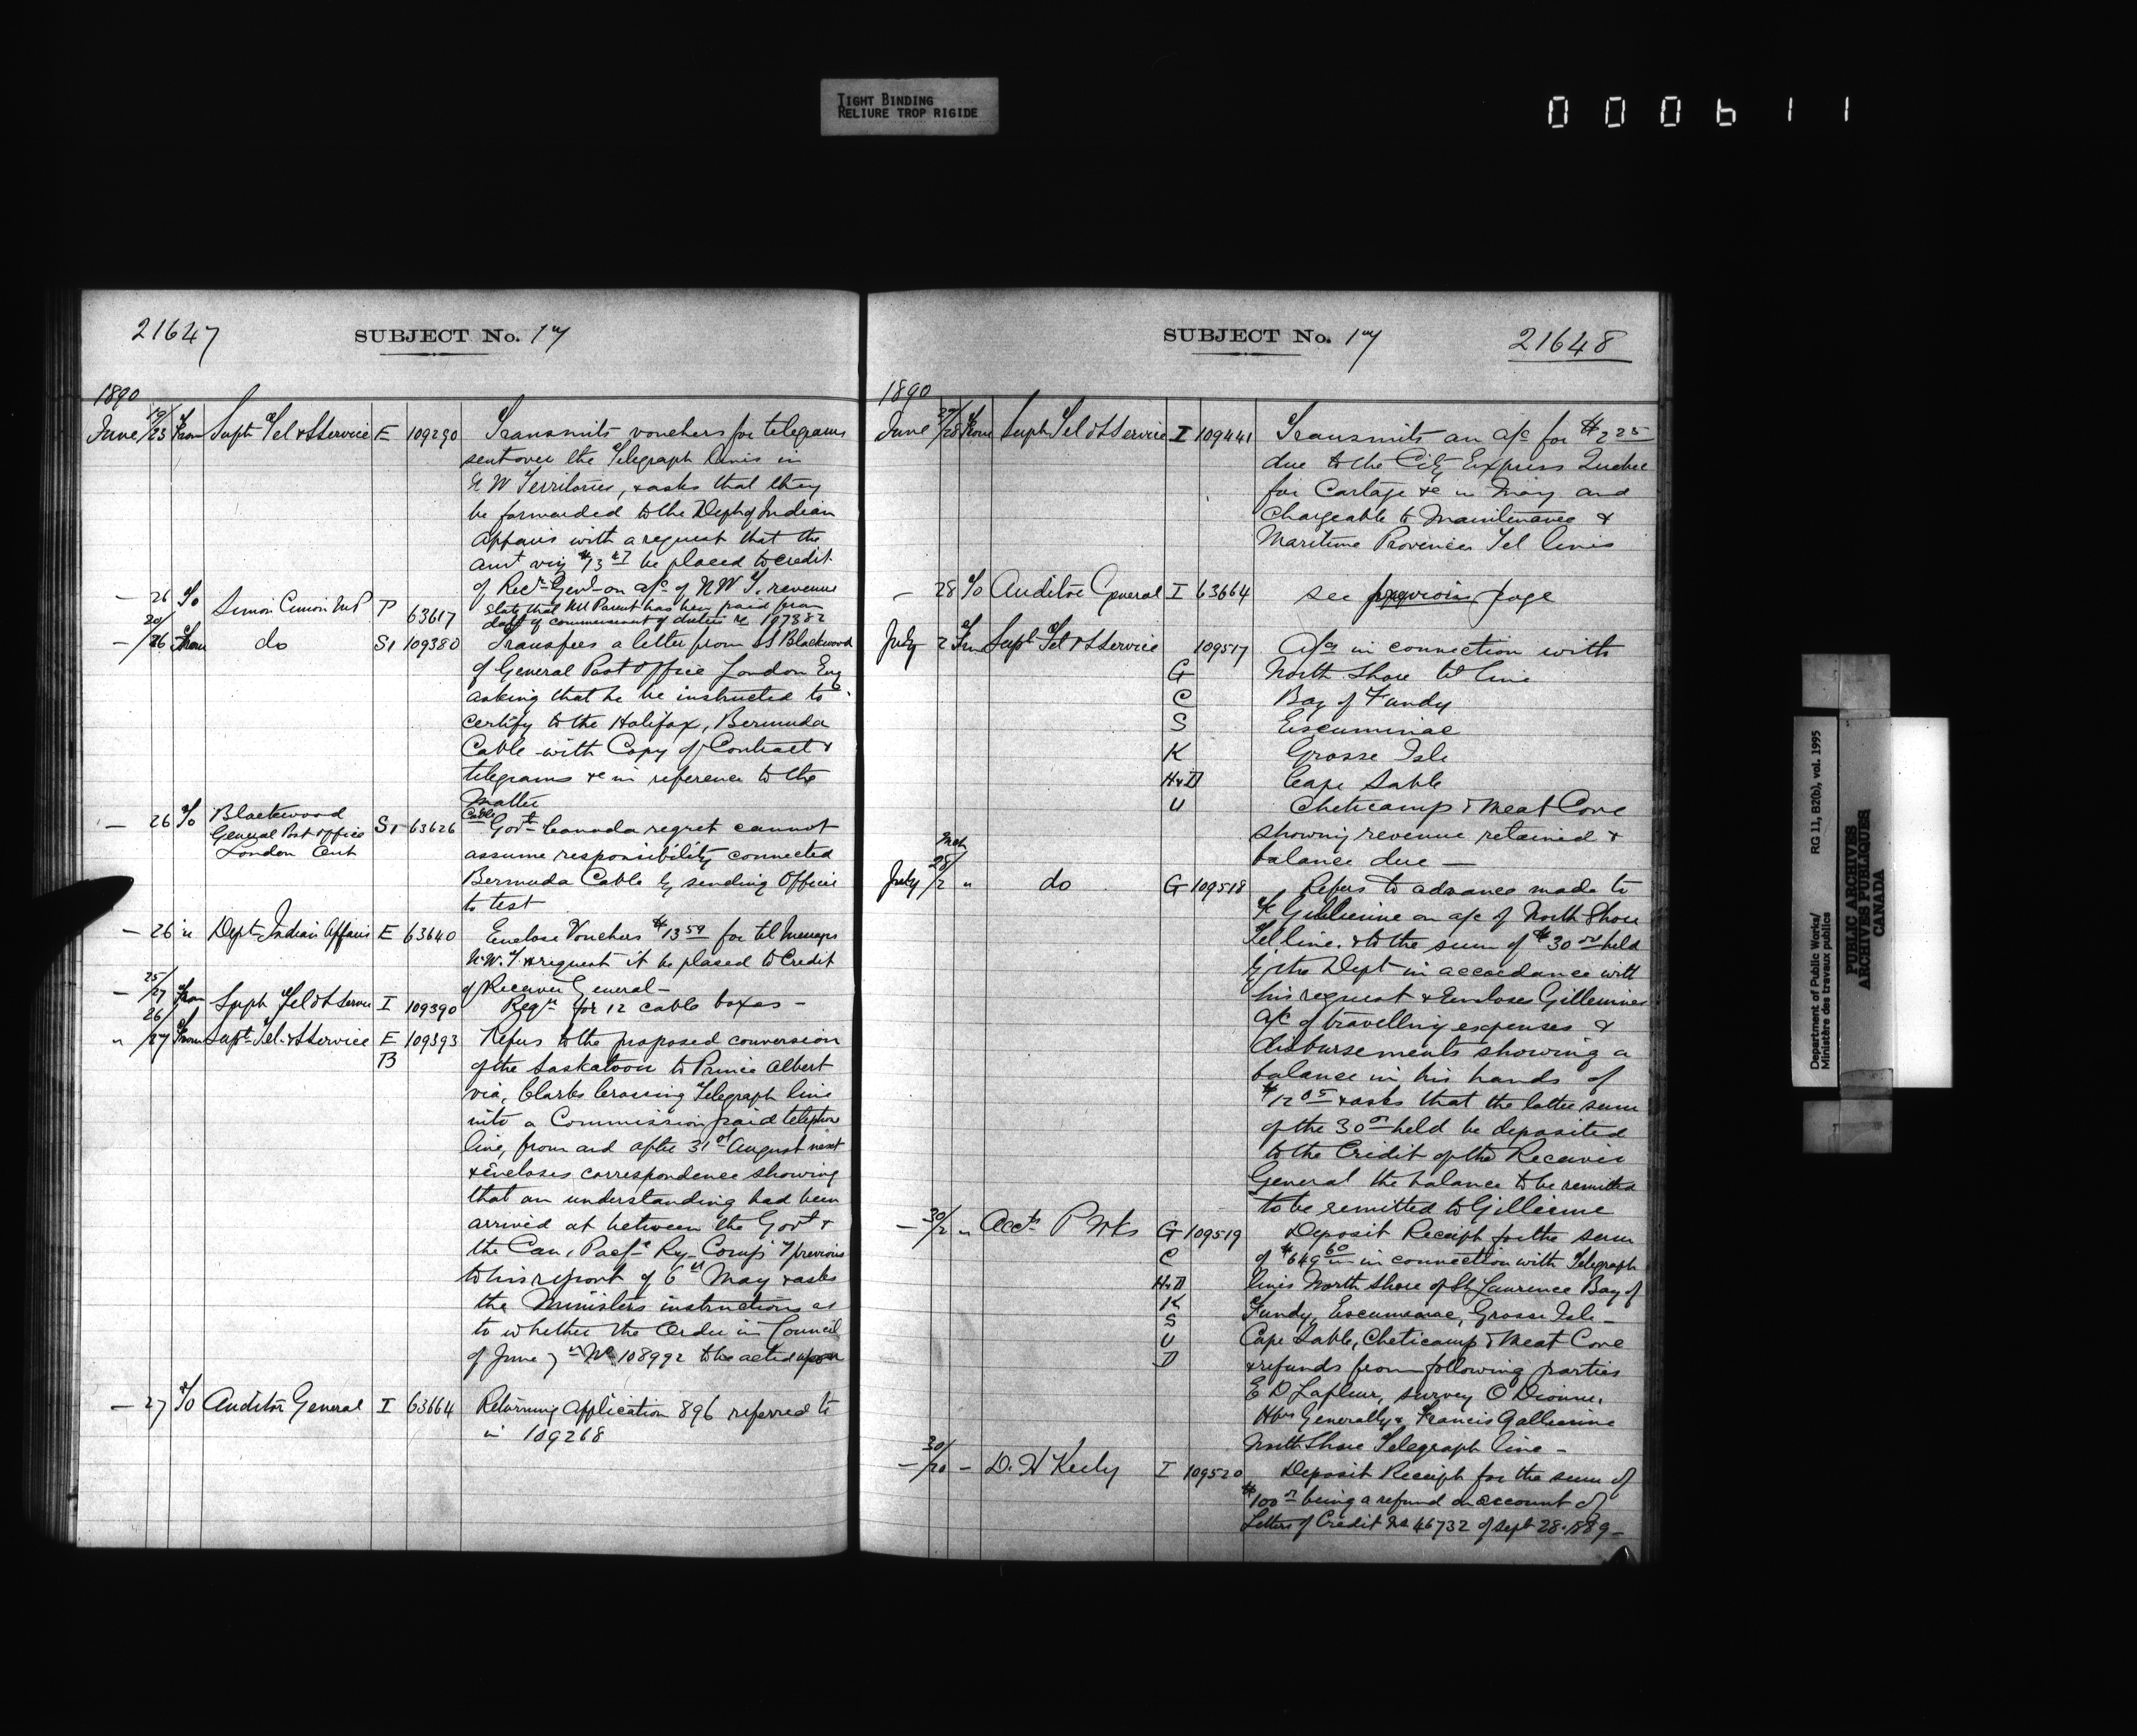 TIGHT BINDING
RELIURE TROP RIGIDE
000611
21647
SUBJECT No. 17
1890
June 19/23 From Supt Tel & S Service E 109290 Transmits vouchers for telegrams
sent over the Telegraph lines in
N W Territories, & asks that they
be forwarded to the Dept of Indian
Affairs with a request that the
amt viz $13 be placed to credit
of Recr Genl on a/c of N W T. revenue
— 26 To Simon Cimon M P P 63617 State that Parent has been paid from
date of commencement of duties re 107382
— 20/26 From do S1 109380 Transfers a letter from Blackwood
of General Post Office London Eng
asking that he be instructed to
certify to the Halifax, Bermuda
Cable with Copy of Contract &
telegrams &c in reference to the
matter
— 26 To Blackwood
General Post Office
London S1 63626 Cable
Govt Canada regret cannot
assume responsibility connected
Bermuda Cable by sending Officer
to test
— 26 " Dept Indian Affairs E 63640 Enclose Vouchers $13 for tel messages
N.W.T. & request it be placed to Credit
of Receiver General —
— 25/27 From Supt Tel & S Service I 109390 Reqn for 12 cable boxes —
" 26/27 From Supt Tel. & S Service E 109393 Refers to the proposed conversion
B of the Saskatoon to Prince Albert
via, Clarks Crossing Telegraph line
into a Commission paid telephone
line, from and after 31st August next
& Encloses correspondence showing
that an understanding had been
arrived at between the Govt &
the Can. Pacfc Ry Comp'y previous
to his report of 6th May & asks
the Ministers instructions as
to whether the Order in Council
of June 7th No 108992 to be acted upon
— 27 To Auditor General I 63664 Returning Application 896 referred to
in 109268
SUBJECT No. 17
21648
1890
June 27/28 From Supt Tel & S Service I 109441 Transmits an a/c for $2 25
due to the City Express Quebec
for Cartage &c in May and
Chargeable to Maintenance &
Maritime Provinces Tel lines
— 28 To Auditor General I 63664 see previous page
July 2 From Supt Tel & S Service 109517 A/cs in connection with
G North Shore tel line
C Bay of Fundy
S Escuminac
K Grosse Isle
H & D Cape Sable
U Cheticamp & Meat Cove
showing revenue retained &
balance due —
July 28/2 " do G 109518 Refers to advance made to
F. on a/c of North Shore
Tel line. & to the sum of $30 00 held
by the Dept in accordance with
his request & Encloses
a/c of travelling expenses &
disbursements showing a
balance in his hands of
$12 05 & asks that the latter sum
of the 30 held be deposited
to the Credit of the Receiver
General the balance to be remitted
to be remitted to
— 30/2 " Acct P Wks G 109519 Deposit Receipt for the sum
C of $649 60 in connection with Telegraph
H & D lines North Shore of St Laurence Bay of
K Fundy, Escuminac, Grosse Isle —
S
U Cape Sable, Cheticamp & Meat Cove
D & refunds from following parties
E D Lafleur, survey O Dionne.
Hbrs Generally & Francis
North Shore Telegraph line —
— 30/20 — D. H Keely I 109520 Deposit Receipt for the sum of
$100 being a refund on account of
Letters of Credit No 46732 of Sept 28. 1889 —
Department of Public Works/
Ministère des travaux publics
RG 11, B2(b), vol. 1995
PUBLIC ARCHIVES
ARCHIVES PUBLIQUES
CANADA